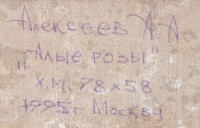 Алексеев А А
„Алые розы"
х.м. 78х58
1995г Москва